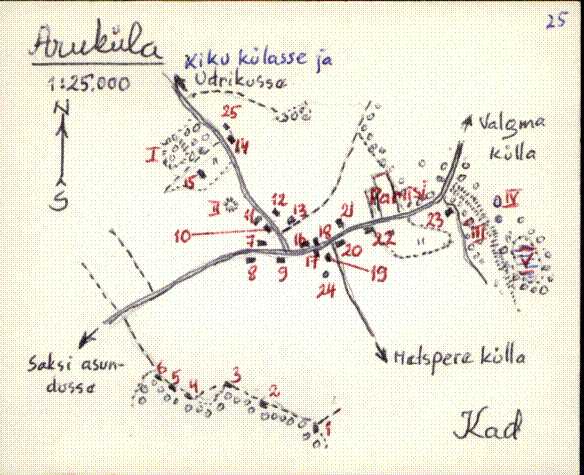 25
Aruküla
1:25.000
Kiku külasse ja
Udrikusse
N
S
Valgma
külla
25
14
I
15
II
12
11
13
10
7
8
9
16
18
17
21
20
19
24
22
23
III
IV
V
Halspere külla
Saksi asun-
dusse
6
5
4
3
2
1
Kad